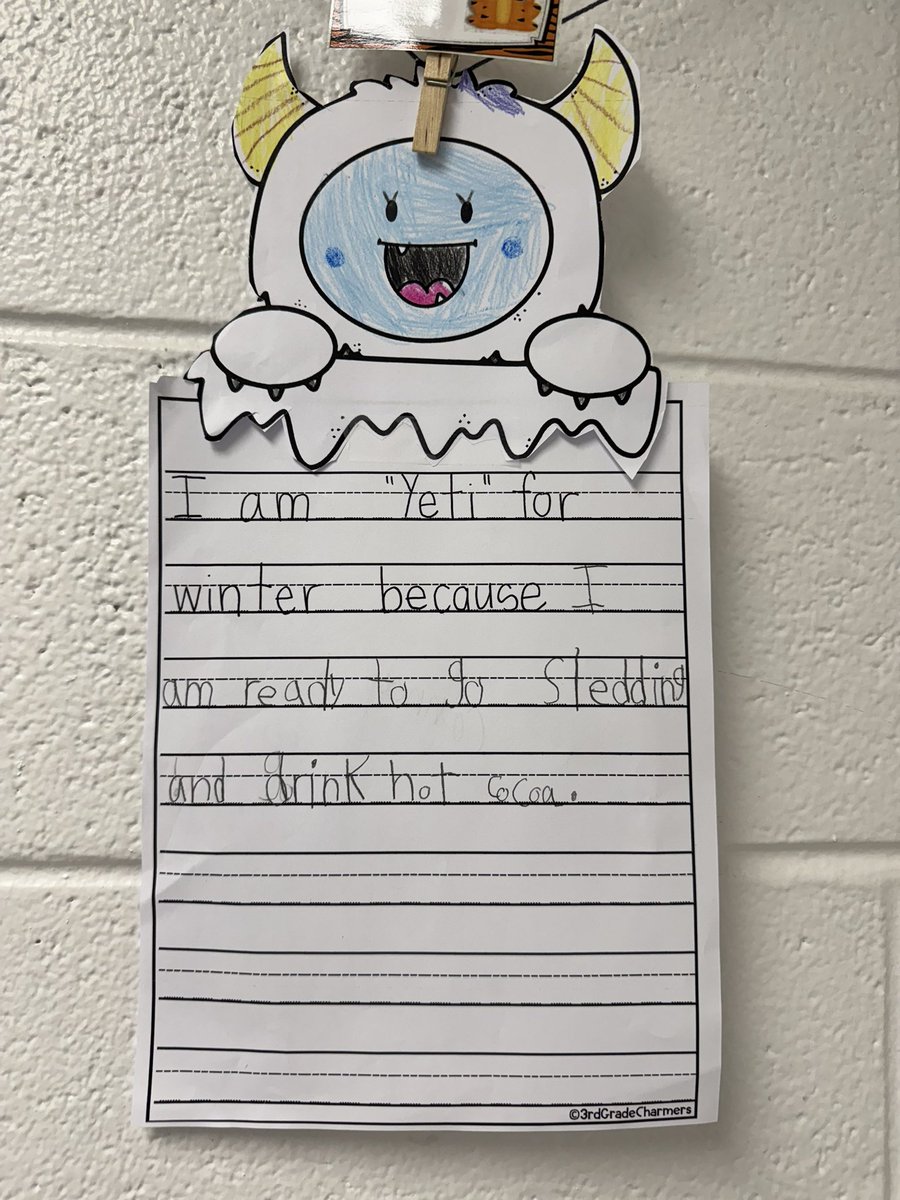 I am "Yeti" for
winter because I
am ready to go Sledding
and drink hot cocoa.
©3rdGradeCharmers